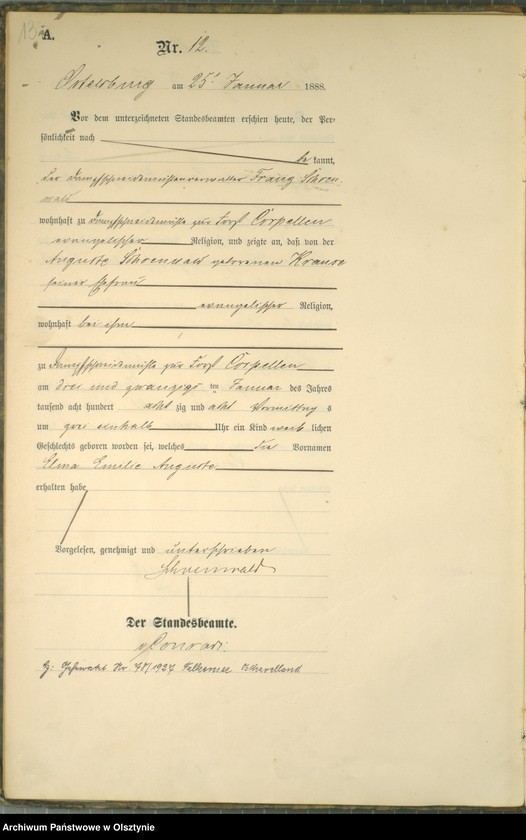 13
A.
Nr. 12.
Ortelsburg am 25t Januar 1888.
Vor dem unterzeichneten Standesbeamten erschien heute, der Per-
sönlichkeit nach
be kannt,
der Dampfschneidemühlenverwalter Franz Schoen-
wald
wohnhaft zu Dampfschneidemühle zur Forst Corpellen
evangelischer Religion, und zeigte an, daß von der
Auguste Schoenwald geborenen Krause
seiner Ehefrau
evangelischer Religion,
wohnhaft bei ihm
zu Dampfschneidemühle zur Forst Corpellen
am drei und zwanzigs ten Januar des Jahres
tausend acht hundert acht zig und acht Vormittag s
um zwei einhalb Uhr ein Kind weib lichen
Geschlechts geboren worden sei, welches die Vornamen
Elma Emilie Auguste
erhalten habe
Vorgelesen, genehmigt und unterschrieben
Schoenwald
Der Standesbeamte.
Conradi.
Nr 78/1927
Archiwum Państwowe w Olsztynie